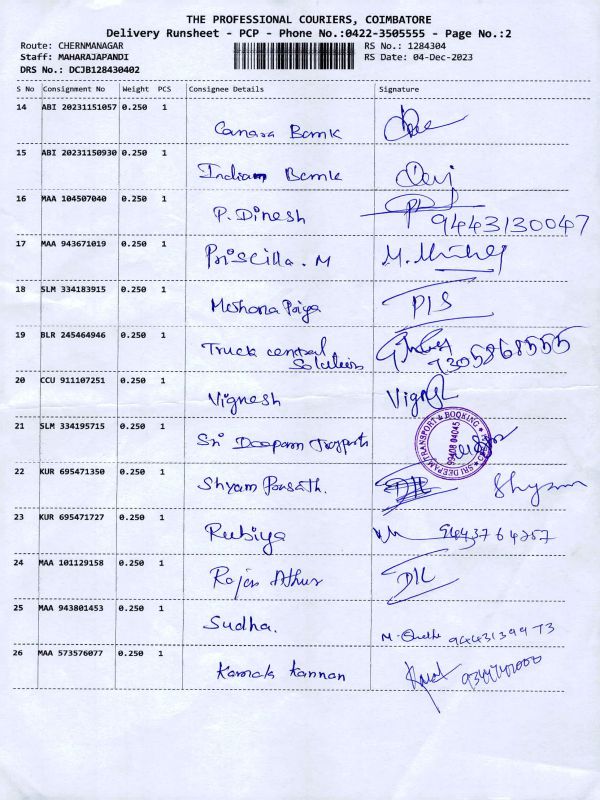 THE PROFESSIONAL COURIERS, COIMBATORE
Delivery Runsheet - PCP - Phone No.:0422-3505555 - Page No.:2
Route: CHERNMANAGAR RS No.: 1284304
Staff: MAHARAJAPANDI RS Date: 04-Dec-2023
DRS No.: DCJB128430402
S No Consignment No Weight PCS Consignee Details Signature
14 ABI 20231151057 0.250 1
Canara Bank
15 ABI 20231150930 0.250 1
Indian Bank
16 MAA 104507040 0.250 1
P. Dinesh 9443130047
17 MAA 943671019 0.250 1
Priscilla. M
18 SLM 334183915 0.250 1
19 BLR 245464946 0.250 1
Truck central 7305868555
Solutions
20 CCU 911107251 0.250 1
Vignesh
21 SLM 334195715 0.250 1
Sri Deepam
SRI DEEPAM TRANSPORT BOOKING
22 KUR 695471350 0.250 1
Shyam Shyam
23 KUR 695471727 0.250 1
Rubiya
24 MAA 101129158 0.250 1
25 MAA 943801453 0.250 1
Sudha.
26 MAA 573576077 0.250 1
Kannan